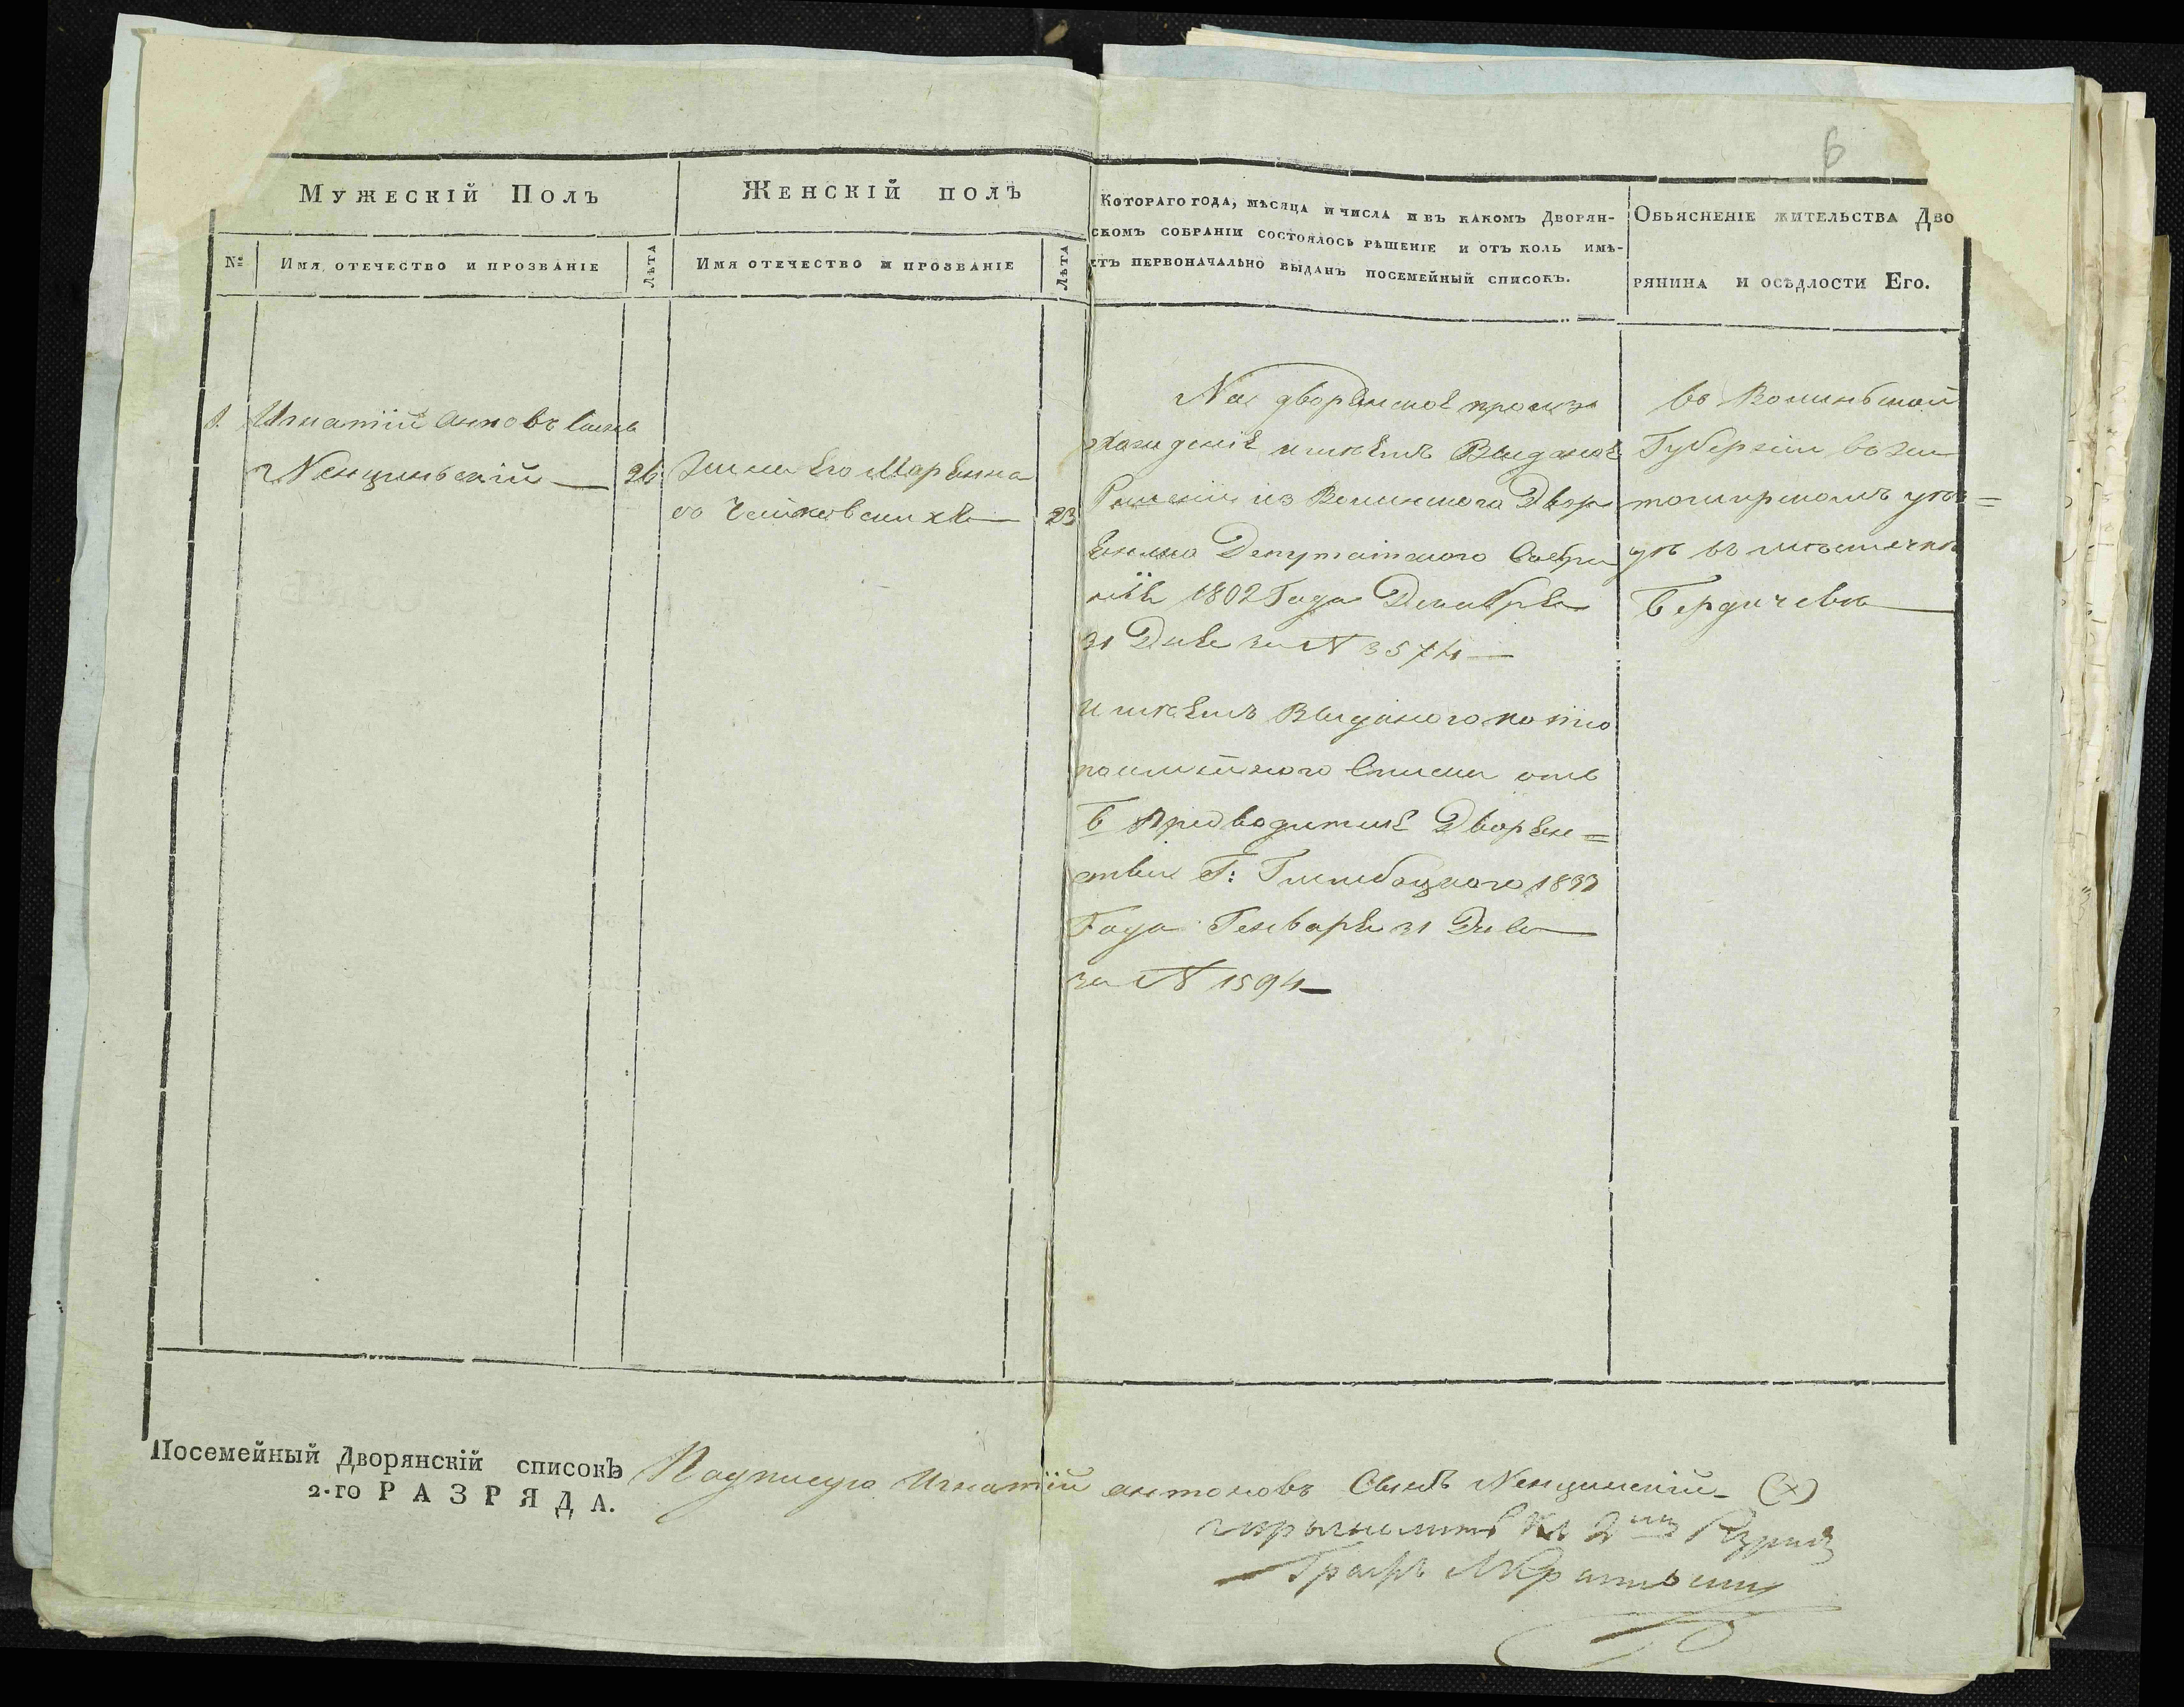 6
Мужескій Полъ
Женскій полъ
Котораго года, мѣсяца и числа и въ какомъ Дворян-
скомъ собраніи состоялось рѣшеніе и отъ коль имѣ-
етъ первоначально выданъ посемейный списокъ.
Обьясненіе жительства Дво
рянина и осѣдлости Его.
№
Имя, отечество и прозваніе
Лѣта
Имя отечество и прозваніе
Лѣта
1. Игнатій Антовъ Сынъ
26
Жена Его Марѣнна
23
На дворѣнское произ
хождѣніе имѣетъ Выданое
Рѣшеніе из Волинского Двор
ѣнскаго Депутатского Собра
нія 1802 Года Декабрѣ
31 Днѣ за N 3574
имѣетъ Выданого
посемейного Списка отъ
Б Предводителѣ Дворѣн=
ства Г: 183
Года Генварѣ 31 Днѣ
за N 1594
во Волиньской
Губерніи во Жи
томирскомъ уѣз=
дѣ въ мѣстечкѣ
Бердичевѣ
Посемейный Дворянскій списокъ
2-го РАЗРЯДА.
Подписую Игнатій Антоновъ Сынъ (x)
2
Графъ